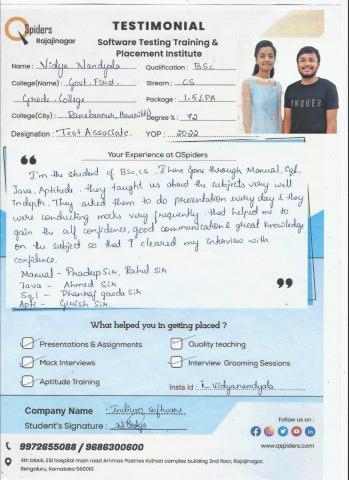 QSpiders
Rajajinagar
TESTIMONIAL
Software Testing Training &
Placement Institute
Name: Vidya Nandyala
Qualification: BSc
College(Name): Govt. First
Stream: CS
Grade College
Package: 1.5 LPA
College(City): Ranebennur, Haveri
Degree %: 72
Designation: Test Associate.
YOP: 2022
INQUIER
Your Experience at QSpiders
I'm the student of BSc,cs. I have gone through Manual, Sql,
Java, Aptitude. they taught us about the subjects very well
Indepth. They asked them to do presentation every day & they
were conducting mocks very frequently. that helped me to
gain the self confidence, good communication & great knowledge
on the subject so that I cleared my Interview with
confidence.
Manual - Pradeep Sir, Rahul Sir
Java - Ahmed Sir
Sql - Dhanraj gowda Sir
Apti - Girish Sir.
What helped you in getting placed ?
Presentations & Assignments
Quality teaching
Mock Interviews
Interview Grooming Sessions
Aptitude Training
Insta Id: i_vidyanandyala
Company Name : Indium Software
Student's Signature :
Follow us on :
9972655088 / 9686300600
www.qspiders.com
4th block, ESI hospital main road Ammas Pastries Kothari complex building 2nd floor, Rajajinagar,
Bengaluru, Karnataka 560010